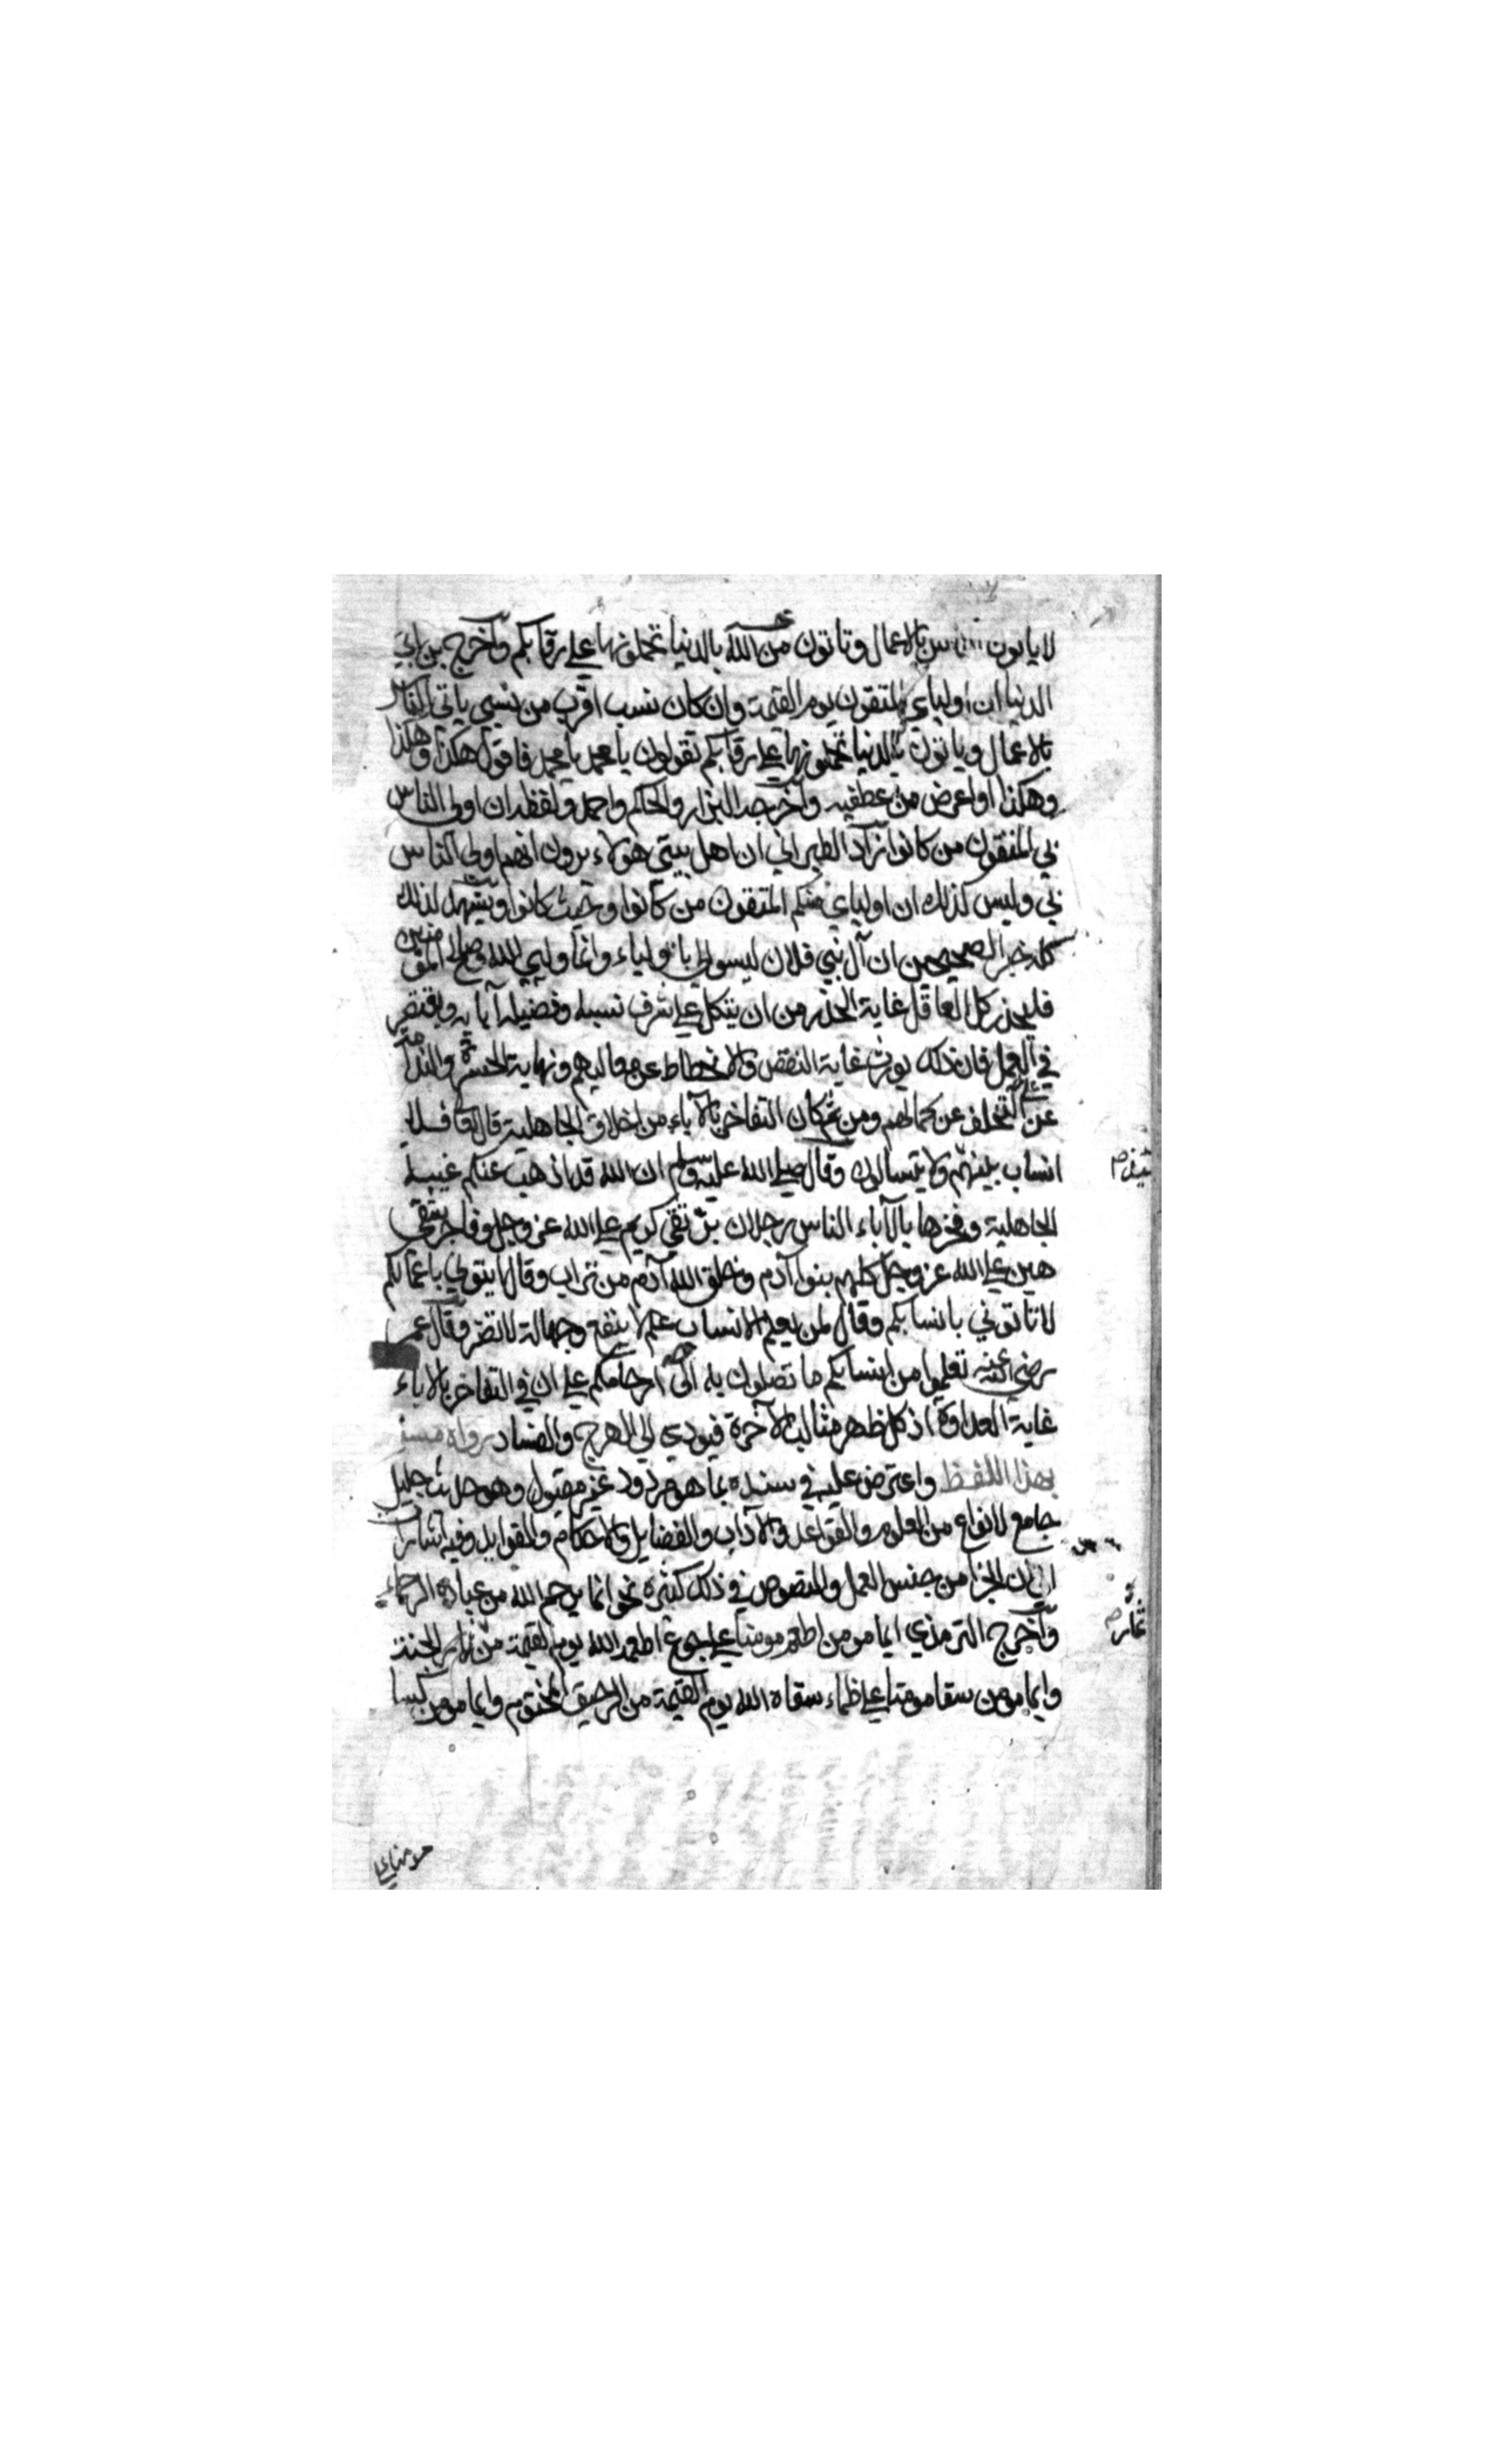 لا ياتون الناس بالاعمال وتاتون من الله بالدنيا تحملونها على رقابكم واخرج بن ابي
الدنيا ان اوليائي المتقون يوم القيمة وان كان نسب اقرب من نسبي ياتي الناس
بالاعمال وياتون بالدنيا تحملونها على رقابكم تقولون يا محمد يا محمد فاقول هكذا وهكذا
وهكذا او اعرض من عطفيه واخرجه البزار والحاكم واحمد ولفظه ان اولى الناس
بي المتقون من كانوا زاد الطبراني ان اهل بيتي هولاء يرون انهم اولى الناس
بي وليس كذلك ان اوليائي منكم المتقون من كانوا وحيث كانوا ويشهد لذلك
كله خبر الصحيحين ان آل بني فلان ليسوا لي باولياء وانما وليي الله وصالح المومنين
فليحذر كل العاقل غاية الحذر من ان يتكل على شرف نسبه وفضيلة آبايه ويقتصر
في العمل فان ذلك يورث غاية النقص والانحطاط عن معاليهم ونهاية الحسرة والندامة
عن التخلف عن كمالهم ومن ثم كان التفاخر بالآباء من اخلاق الجاهلية قال تعا فلا
انساب بينهم ولا يتسالون وقال صلى الله عليه وسلم ان الله قد اذهب عنكم عيبة
الجاهلية وفخرها بالآباء الناس رجلان بر تقي كريم على الله عز وجل وفاجر شقي
هين على الله عز وجل كلهم بنوا آدم وخلق الله آدم من تراب وقال ايتوني باعمالكم
لا تاتوني بانسابكم وقال لمن يعلم الانساب علم لا ينفع وجهالة لا تضر وقال عمر
رضي الله عنه تعلموا من انسابكم ما تصلون به الى ارحامكم على ان في التفاخر بالاباء
غاية العداوة اذ كل ظهر مثالب الآخرة فيودي الى الهرج والفساد رواه مسلم
بهذا اللفظ واعترض عليه في سنده بما هو مردود غير مقبول وهو حديث جليل
جامع لانواع من العلوم والقواعد والآداب والفضايل والاحكام والفوايد وفيه اشارة
الى ان الجزا من جنس العمل والنصوص في ذلك كثيرة نحو انما يرحم الله من عباده الرحماء
واخرج الترمذي ايما مومن اطعم مومنا على جوع اطعمه الله يوم القيمة من ثمار الجنة
وايما مومن سقا مومنا على ظماء سقاه الله يوم القيمة من الرحيق المختوم وايما مومن كسا
ثمار
مومنا على